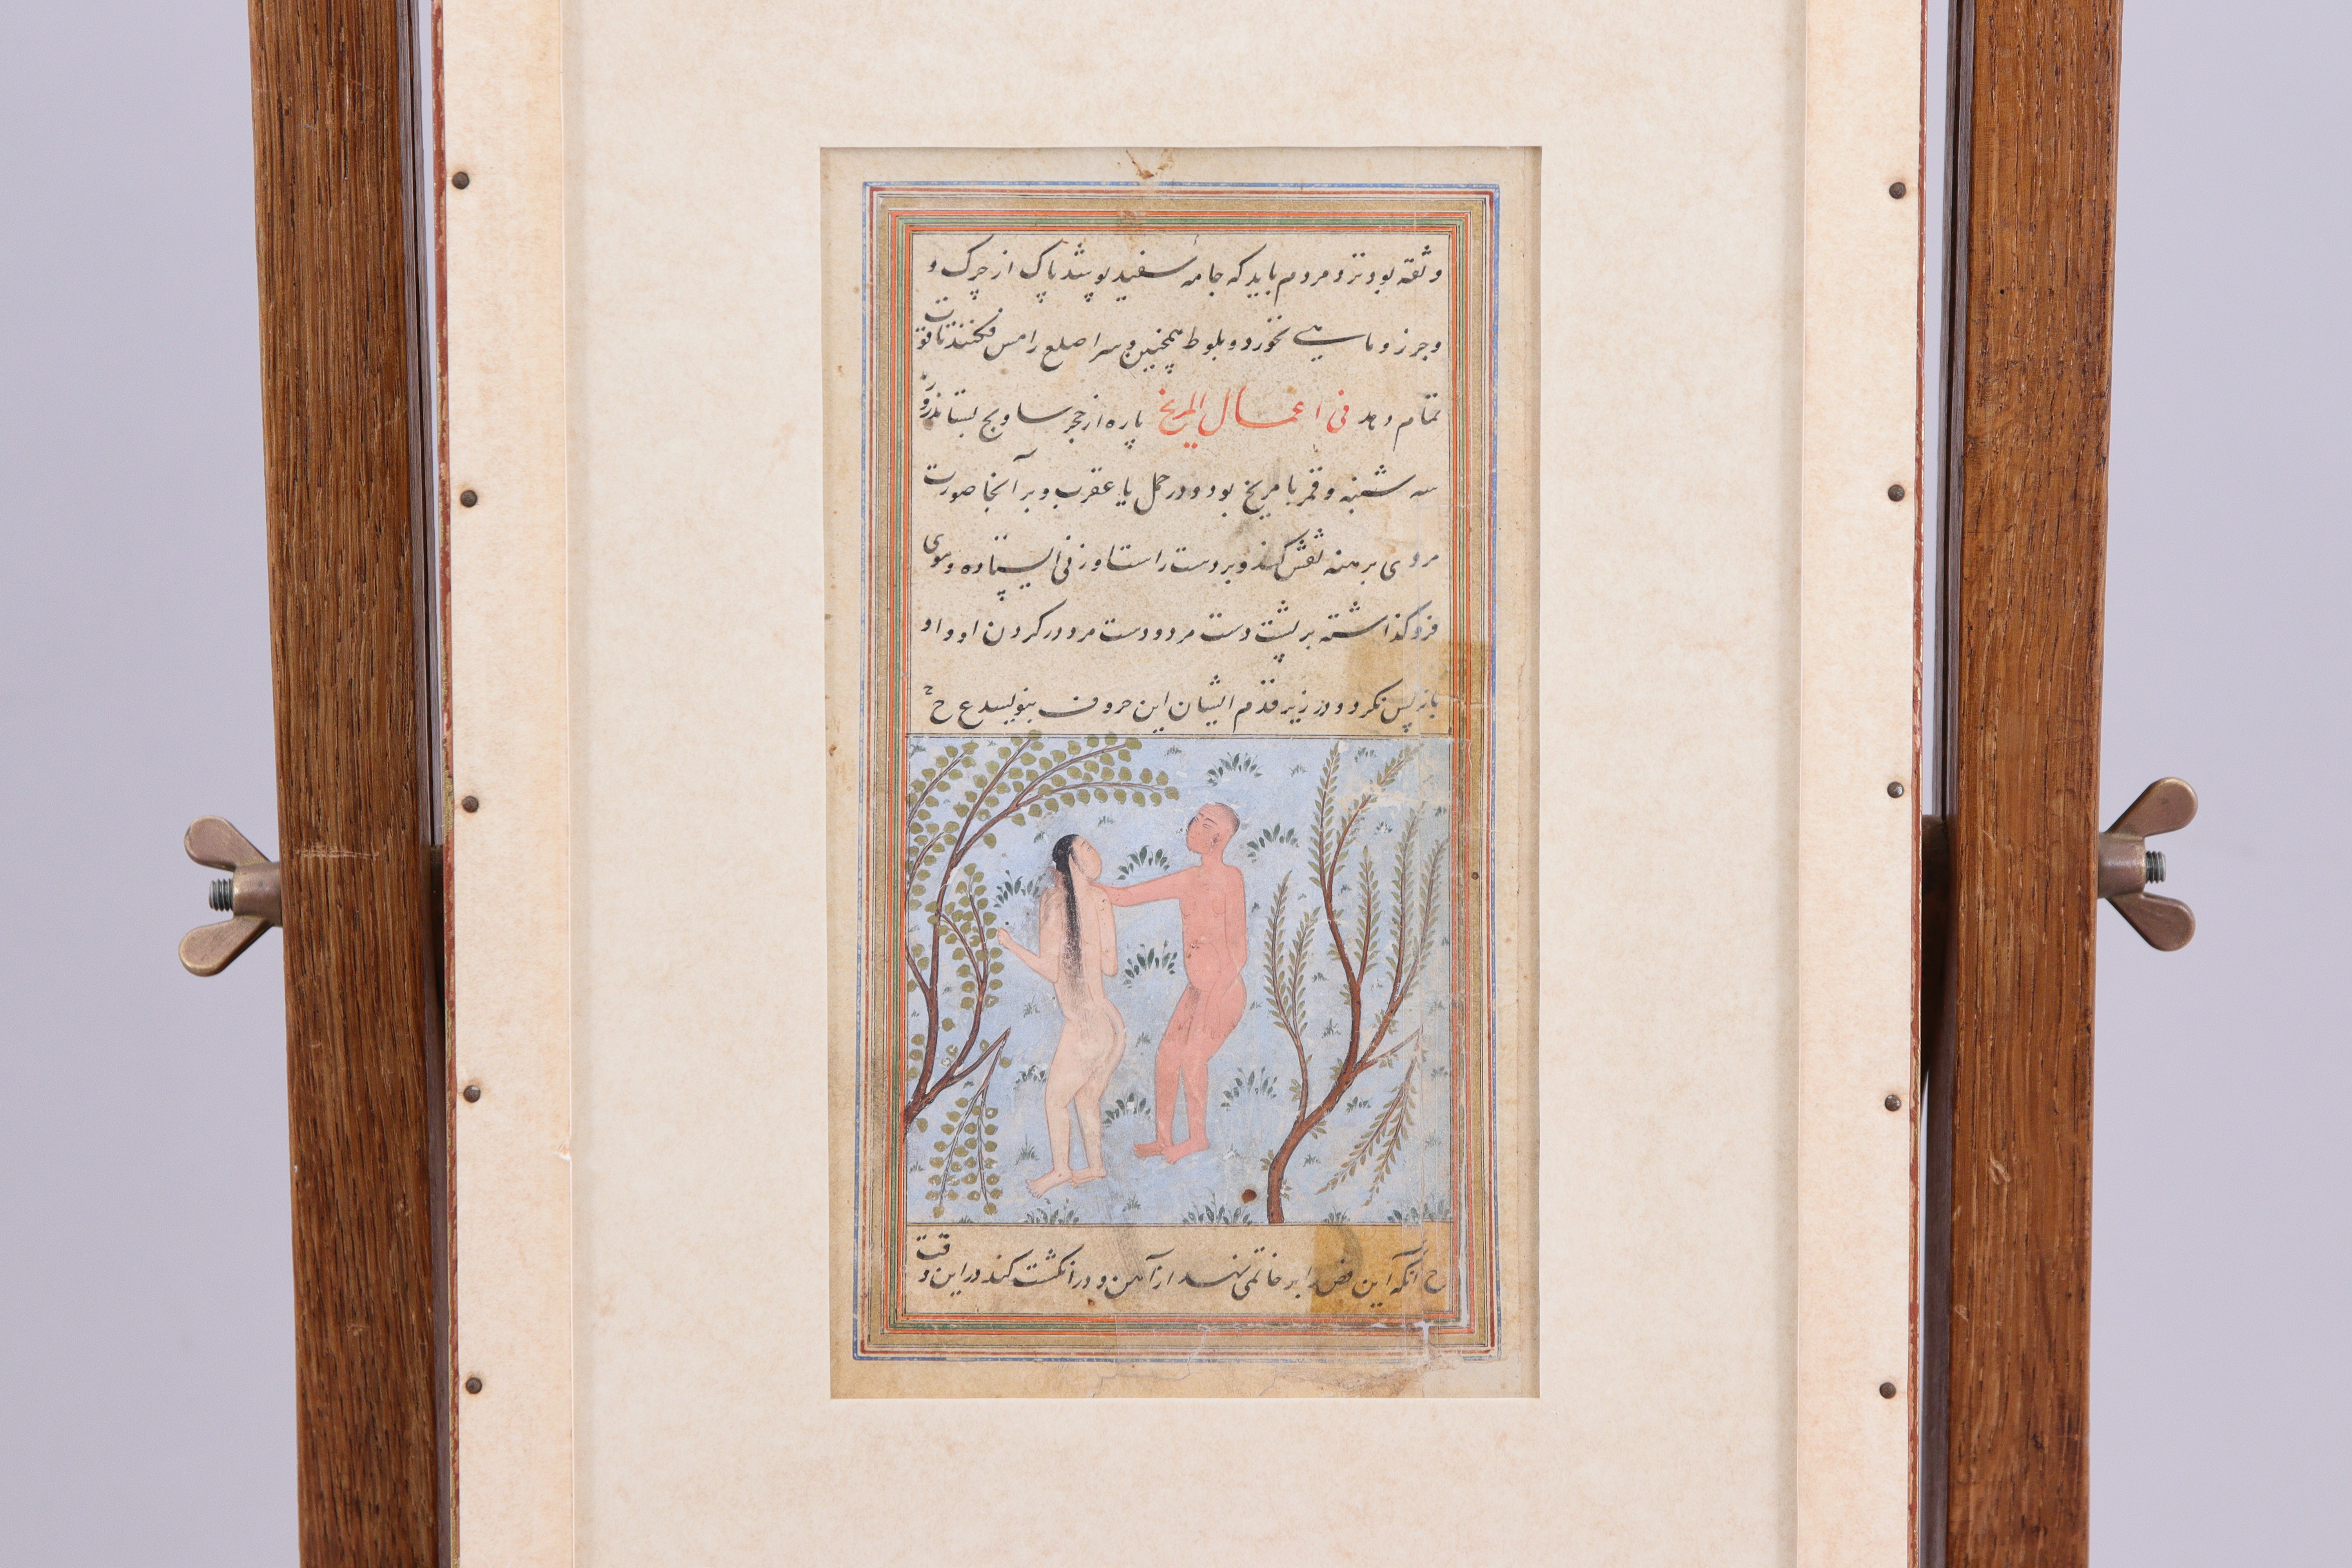 و ثقه بود نزد مردم باید که جامه سفید پوشد پاک از چرک و
و جرز و ماهی نخورد و بلوط همچنین و سر اصلع را مس نکند تا قوت
تمام دهد فی اعمال المریخ پاره از حجر ساویج بستاند روز
سه شنبه و قمر با مریخ بود و در حمل یا عقرب و بر آنجا صورت
مردی برهنه نقش کند و بر دست راست او زنی ایستاده و موی
فرو گذاشته بر پشت دست مرد و دست مرد در گردن او و او
باز پس نگرد و در زیر قدم ایشان این حروف بنویسد ع ح
ح آنگه این فص را بر خاتمی نهد از آهن و در انگشت کند در این وقت